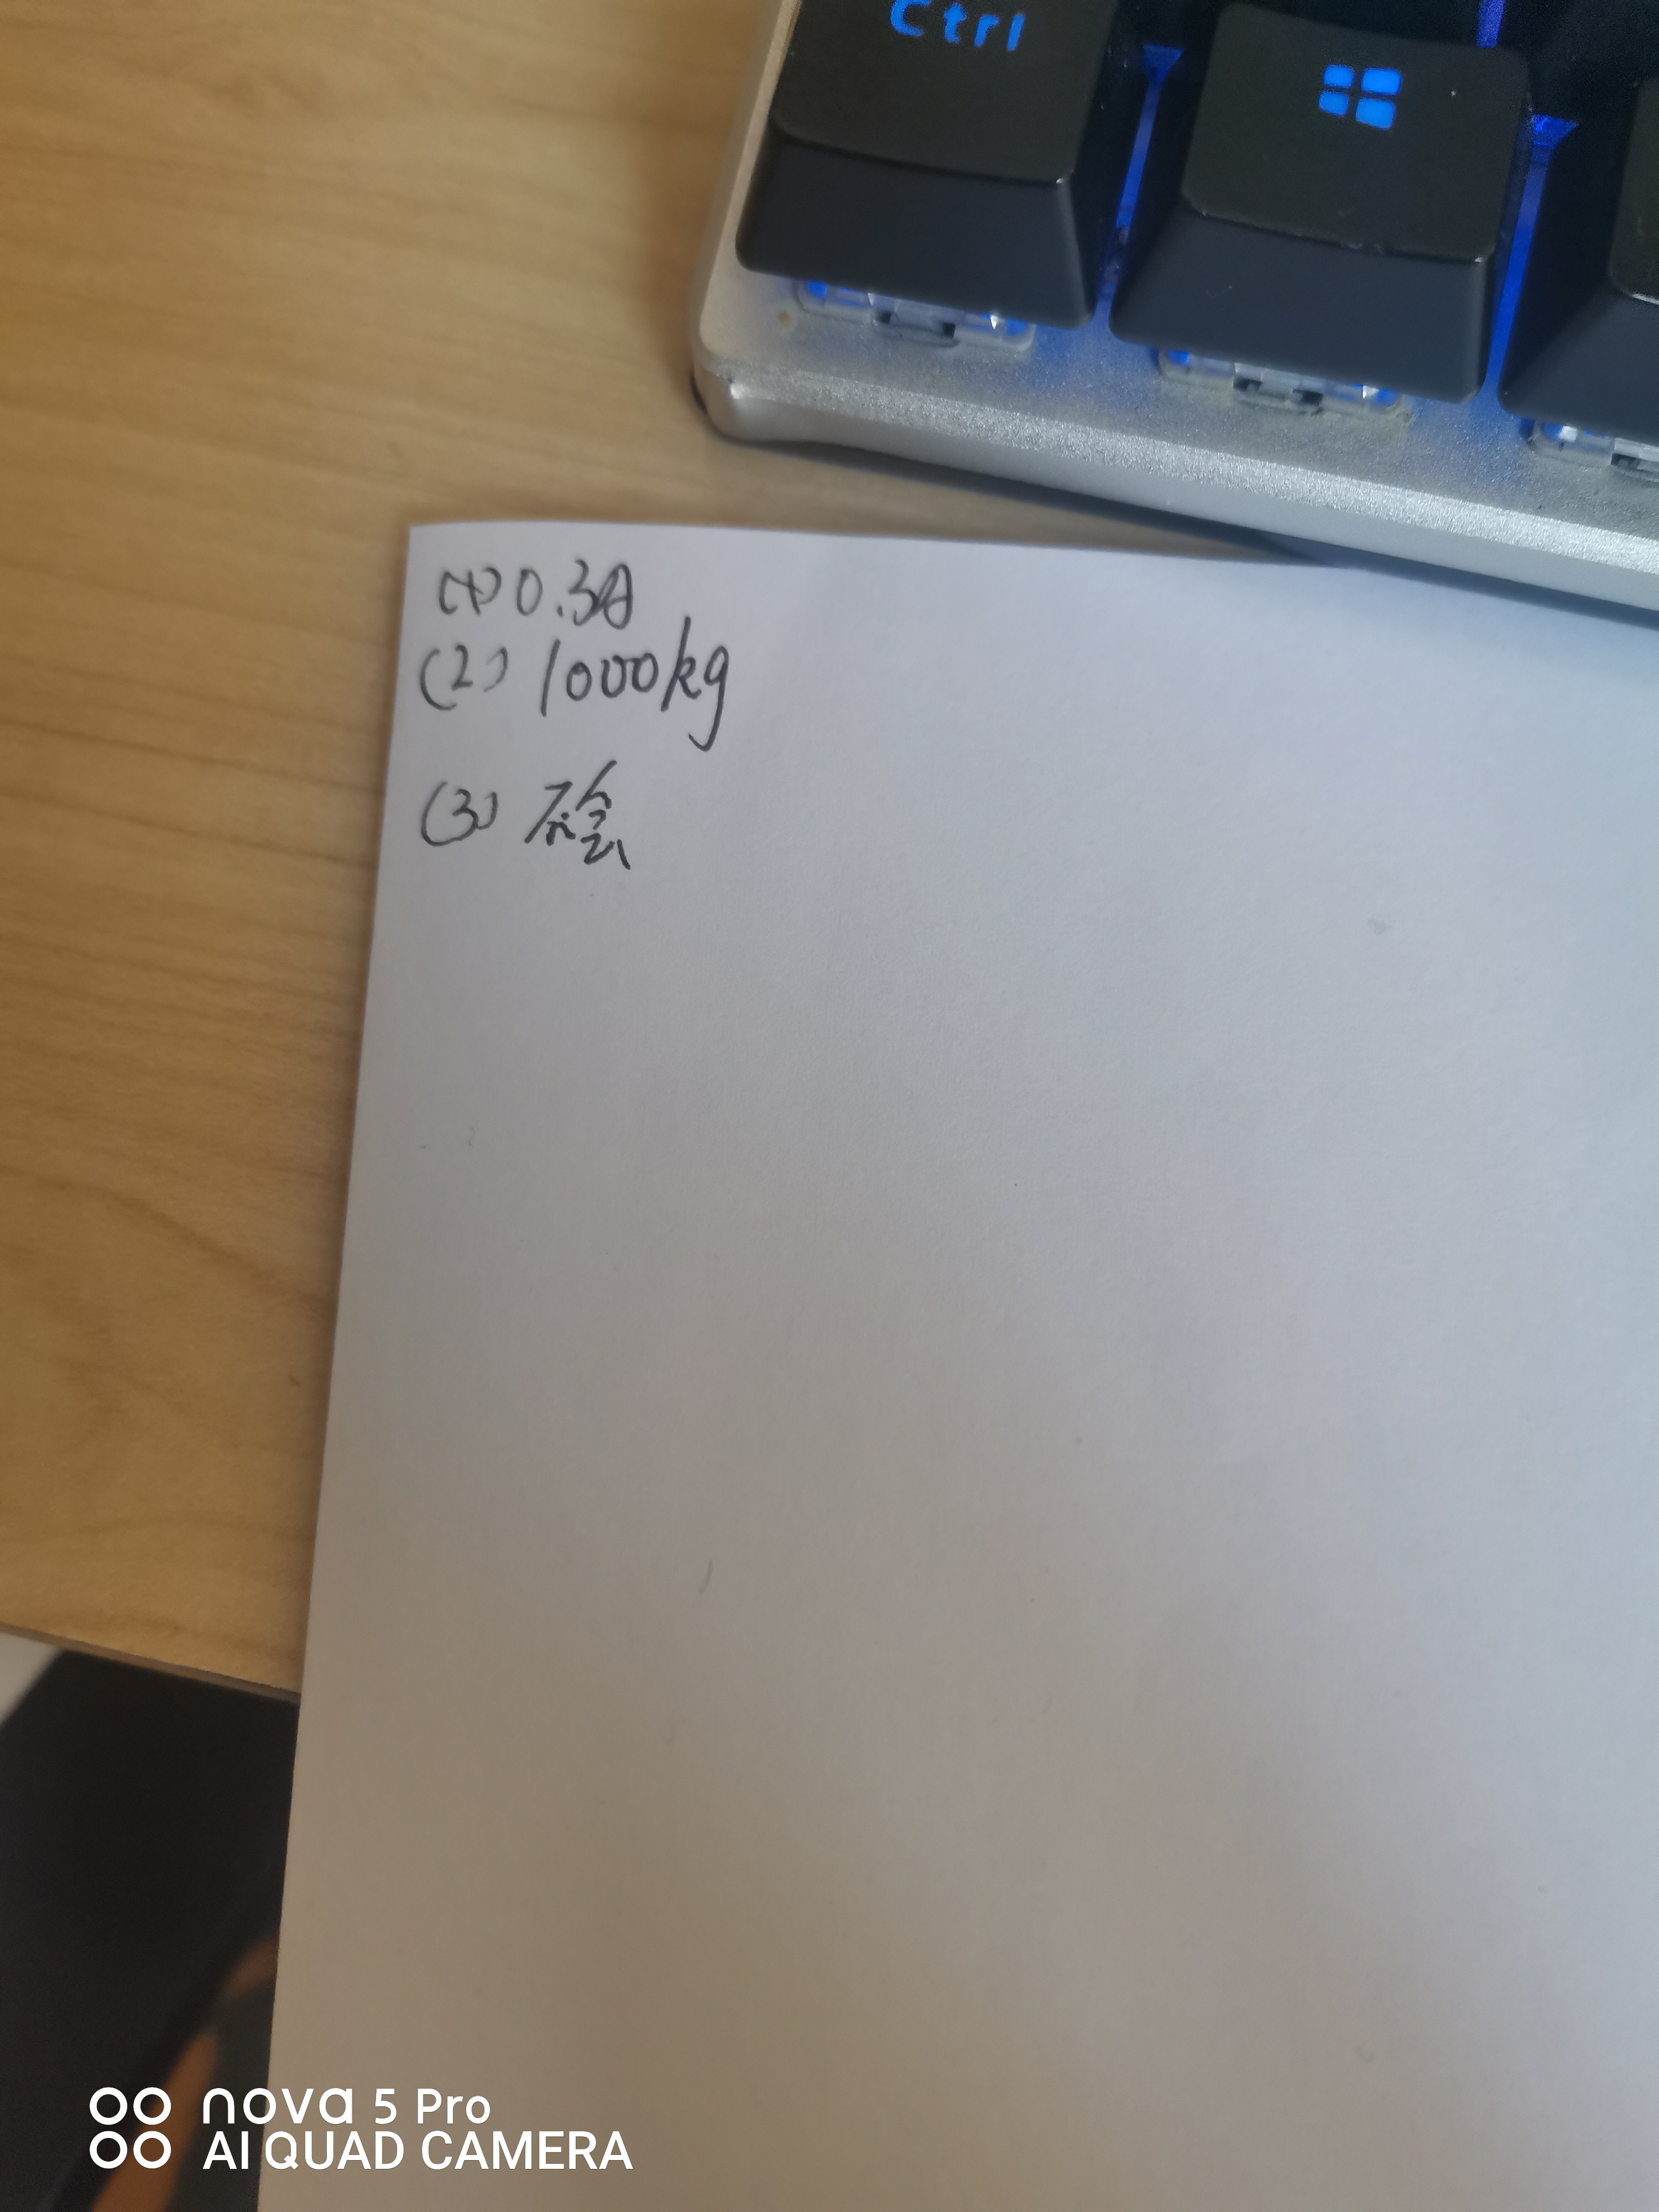 Ctrl
(1) 0.3A
(2) 1000kg
(3) 不会
nova 5 Pro
AI QUAD CAMERA